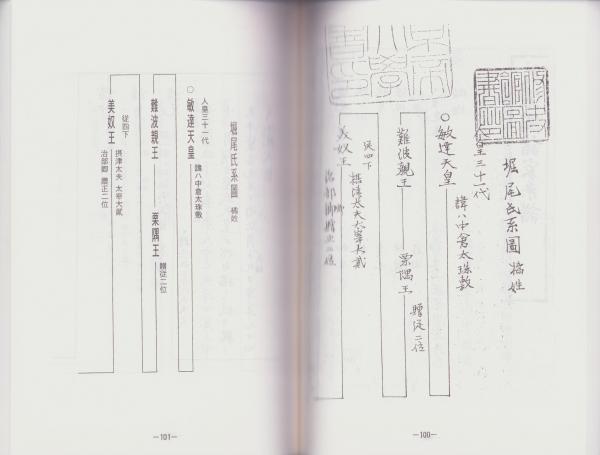 堀尾氏系圖 橘姓
人皇三十一代
○敏達天皇 諱ハ中倉太珠敷
難波親王 栗隅王 贈従二位
美奴王
従四下
摂津太夫太宰大貳
治部卿贈正二位
―100―
堀尾氏系圖 橘姓
人皇三十一代
○敏達天皇 諱ハ中倉太珠敷
難波親王 栗隅王 贈従二位
美奴王
従四下
摂津太夫 太宰大貳
治部卿 贈正二位
―101―